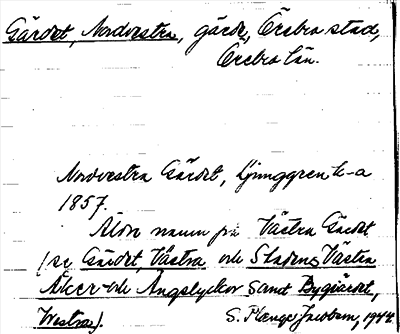 Gärdet, Nordvestra, gärde, Örebro stad,
Örebro län.
Nordvestra Gärdet, Ljunggren k-a
1857.
Äldre namn på Västra Gärdet
(se Gärdet, Västra och Stadens Västra
Åker- och Ängslyckor samt Bygärdet,
Westra).
S. Plenge Jacobson, 1944.